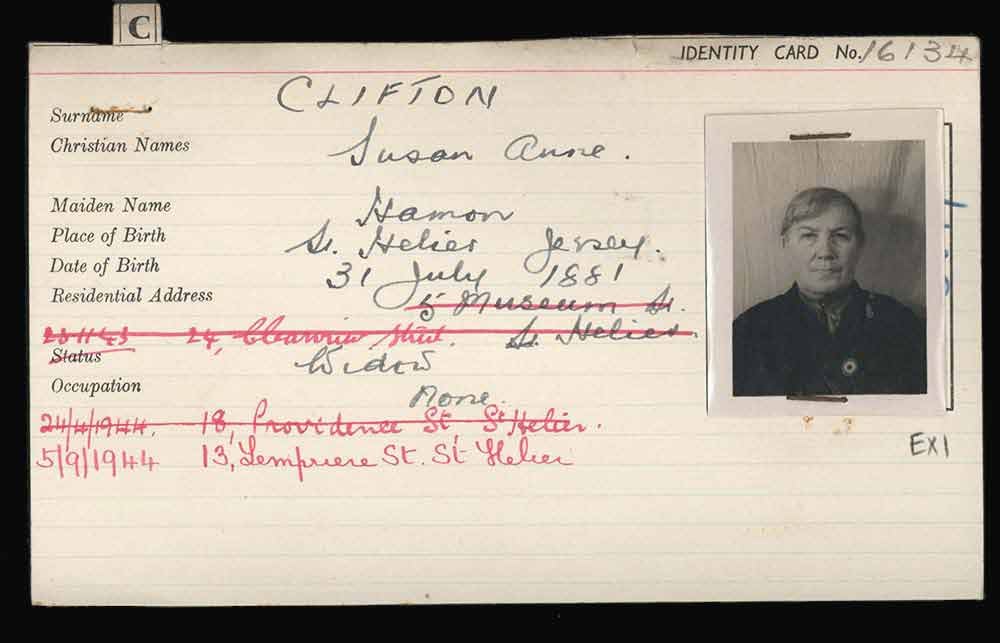 C
IDENTITY CARD No. 16134
Surname CLIFTON
Christian Names Susan Anne.
Maiden Name Hamon
Place of Birth St. Helier Jersey.
Date of Birth 31 July 1881
Residential Address 5 Museum St.
23.11.43 24, Clearview Street. St. Helier.
Status Widow
Occupation None.
24/4/1944. 18, Providence St, St Helier.
5/9/1944 13, Lempriere St. St Helier
EX1